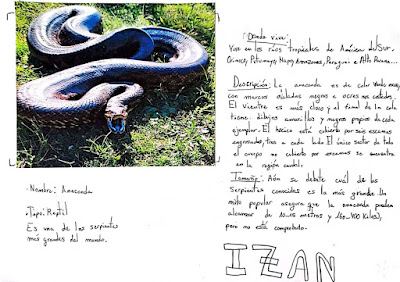 · Nombre: Anaconda
· Tipo: Reptil
Es una de las serpientes
más grandes del mundo.
Donde vive:
Vive en los ríos tropicales de América del Sur.
Orinoco, Putumayo, Napo, Amazonas, Paraguai e Alto Paraná...
Descripción: La anaconda es de color verde
con marcas ovaladas negras o ocres
El vientre es más claro y el final de la cola
tiene dibujos amarillos y negros propios de cada
ejemplar. El hocico está cubierto por seis escamas
engrosadas, tres a cada lado. El único sector de todo
el cuerpo no cubierto por escamas se encuentra
en la región caudal.
Tamaño: Aún se debate cuál de las
serpientes conocidas es la más grande. Un
mito popular asegura que la anaconda pueden
alcanzar de 10-15 metros y kilos),
pero no está comprobado.
IZAN